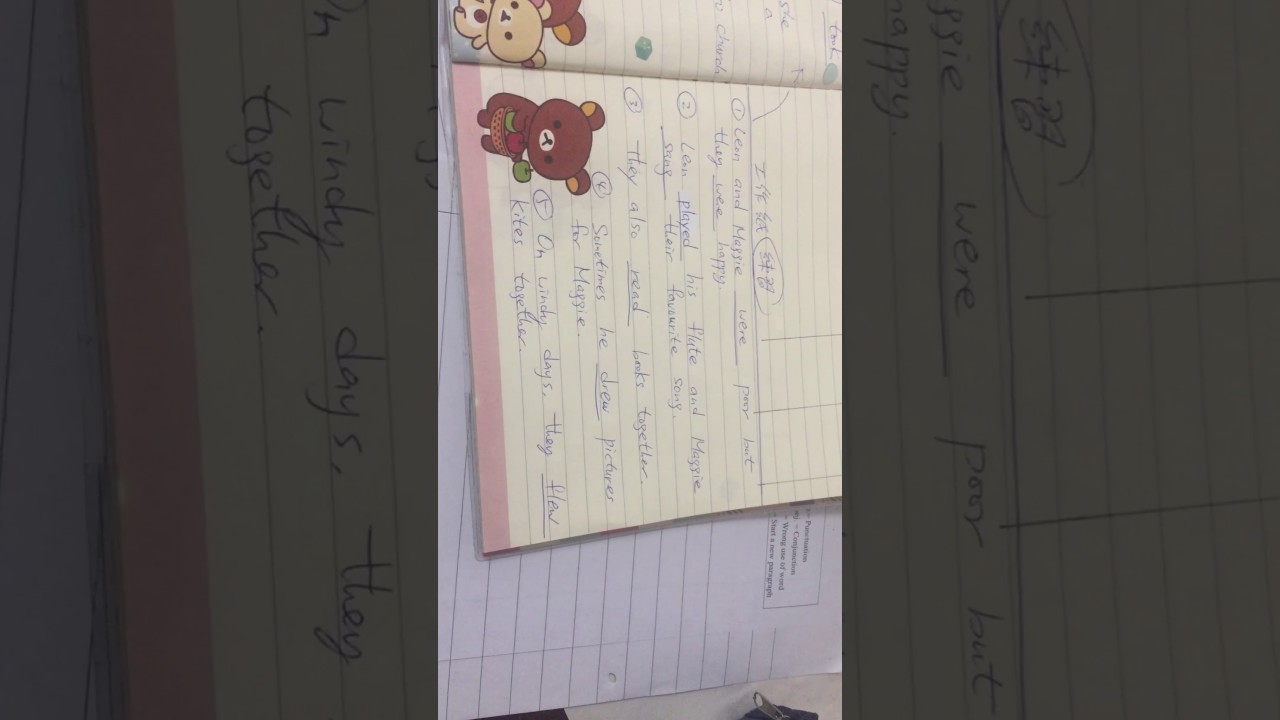 took
she
a
to church
工作紙
① Leon and Maggie were poor but
they were happy.
② Leon played his flute and Maggie
sang their favourite song.
③ They also read books together.
④ Sometimes he drew pictures
for Maggie.
⑤ On windy days, they flew
kites together.
Punctuation
= Conjunction
= Wrong use of word
= Start a new paragraph